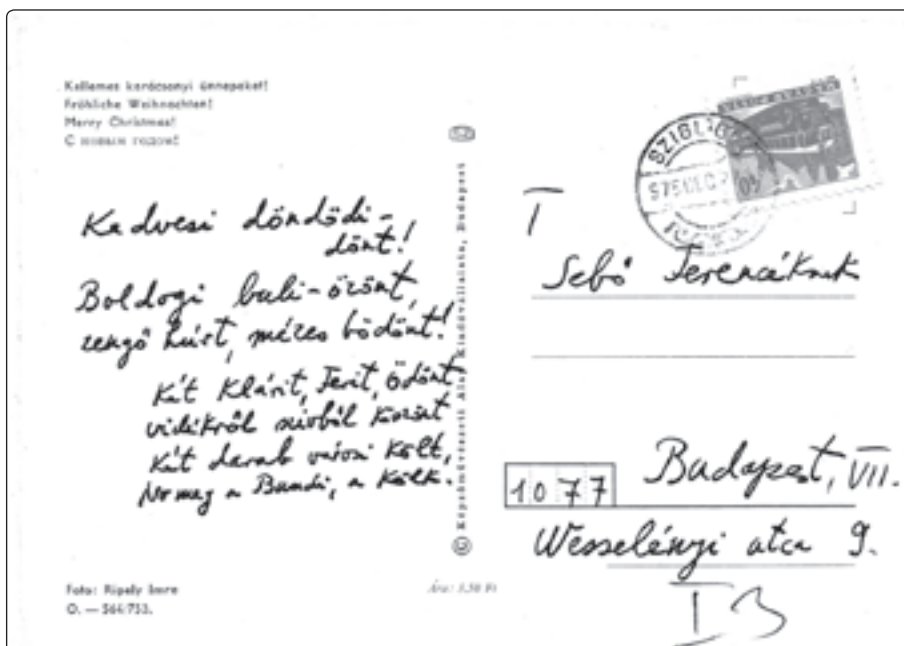 Kellemes karácsonyi ünnepeket!
Fröhliche Weihnachten!
Merry Christmas!
С новым годом!
Kadvesi döndödi-
dönt!
Boldogi buli-özönt,
zengő húrt, mézes bödönt!
Két Klárit, Ferit, Ödönt
vidékről szívből köszönt
két darab városi költ,
No meg a Bandi, a kölk.
Foto: Ripely Imre
O. — 564/753.
Képzőművészeti Alap Kiadóvállalata, Budapest
Ára: 3,50 Ft
SZIGLIGET
T
Sebő Ferencéknek
Budapest, VII.
1077
Wesselényi utca 9.
I 3